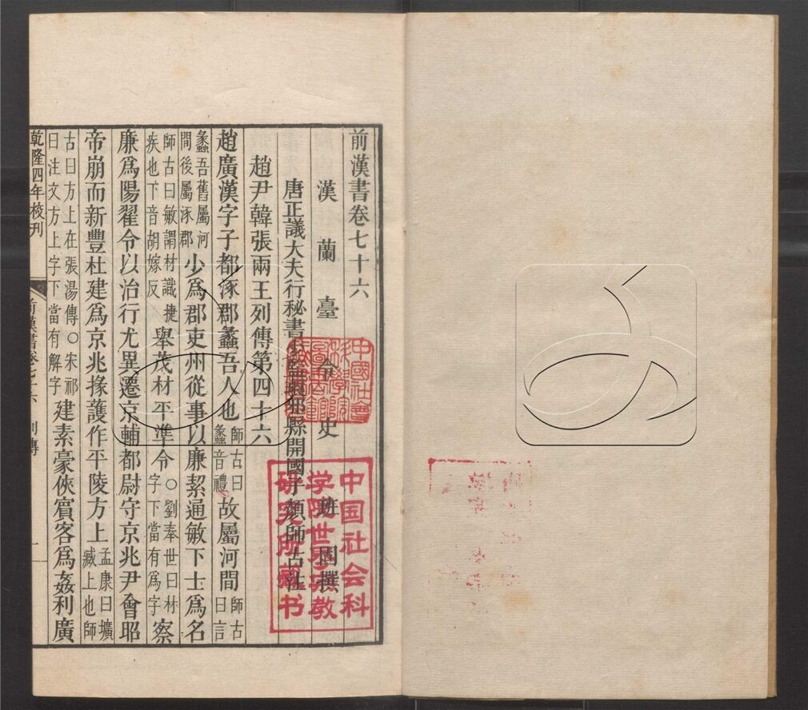 前漢書卷七十六
漢蘭臺令史班固撰
唐正議大夫行秘書少監琅邪縣開國子顏師古注
趙尹韓張兩王列傳第四十六
趙廣漢字子都涿郡蠡吾人也師古曰蠡音禮故屬河間師古曰言
蠡吾舊屬河間後屬涿郡少為郡吏州從事以廉絜通敏下士為名
師古曰敏謂材識捷疾也下音胡嫁反舉茂材平準令○劉奉世曰林字下當有為字察
廉為陽翟令以治行尤異遷京輔都尉守京兆尹會昭
帝崩而新豐杜建為京兆掾護作平陵方上孟康曰擴臧上也師
古曰方上在張湯傳○宋祁曰注文方上字下當有解字建素豪俠賓客為姦利廣
乾隆四年校刊
前漢書卷七十六 列傳
一
中國社會科學院圖書館藏
中国社会科学院世界宗教研究所藏书